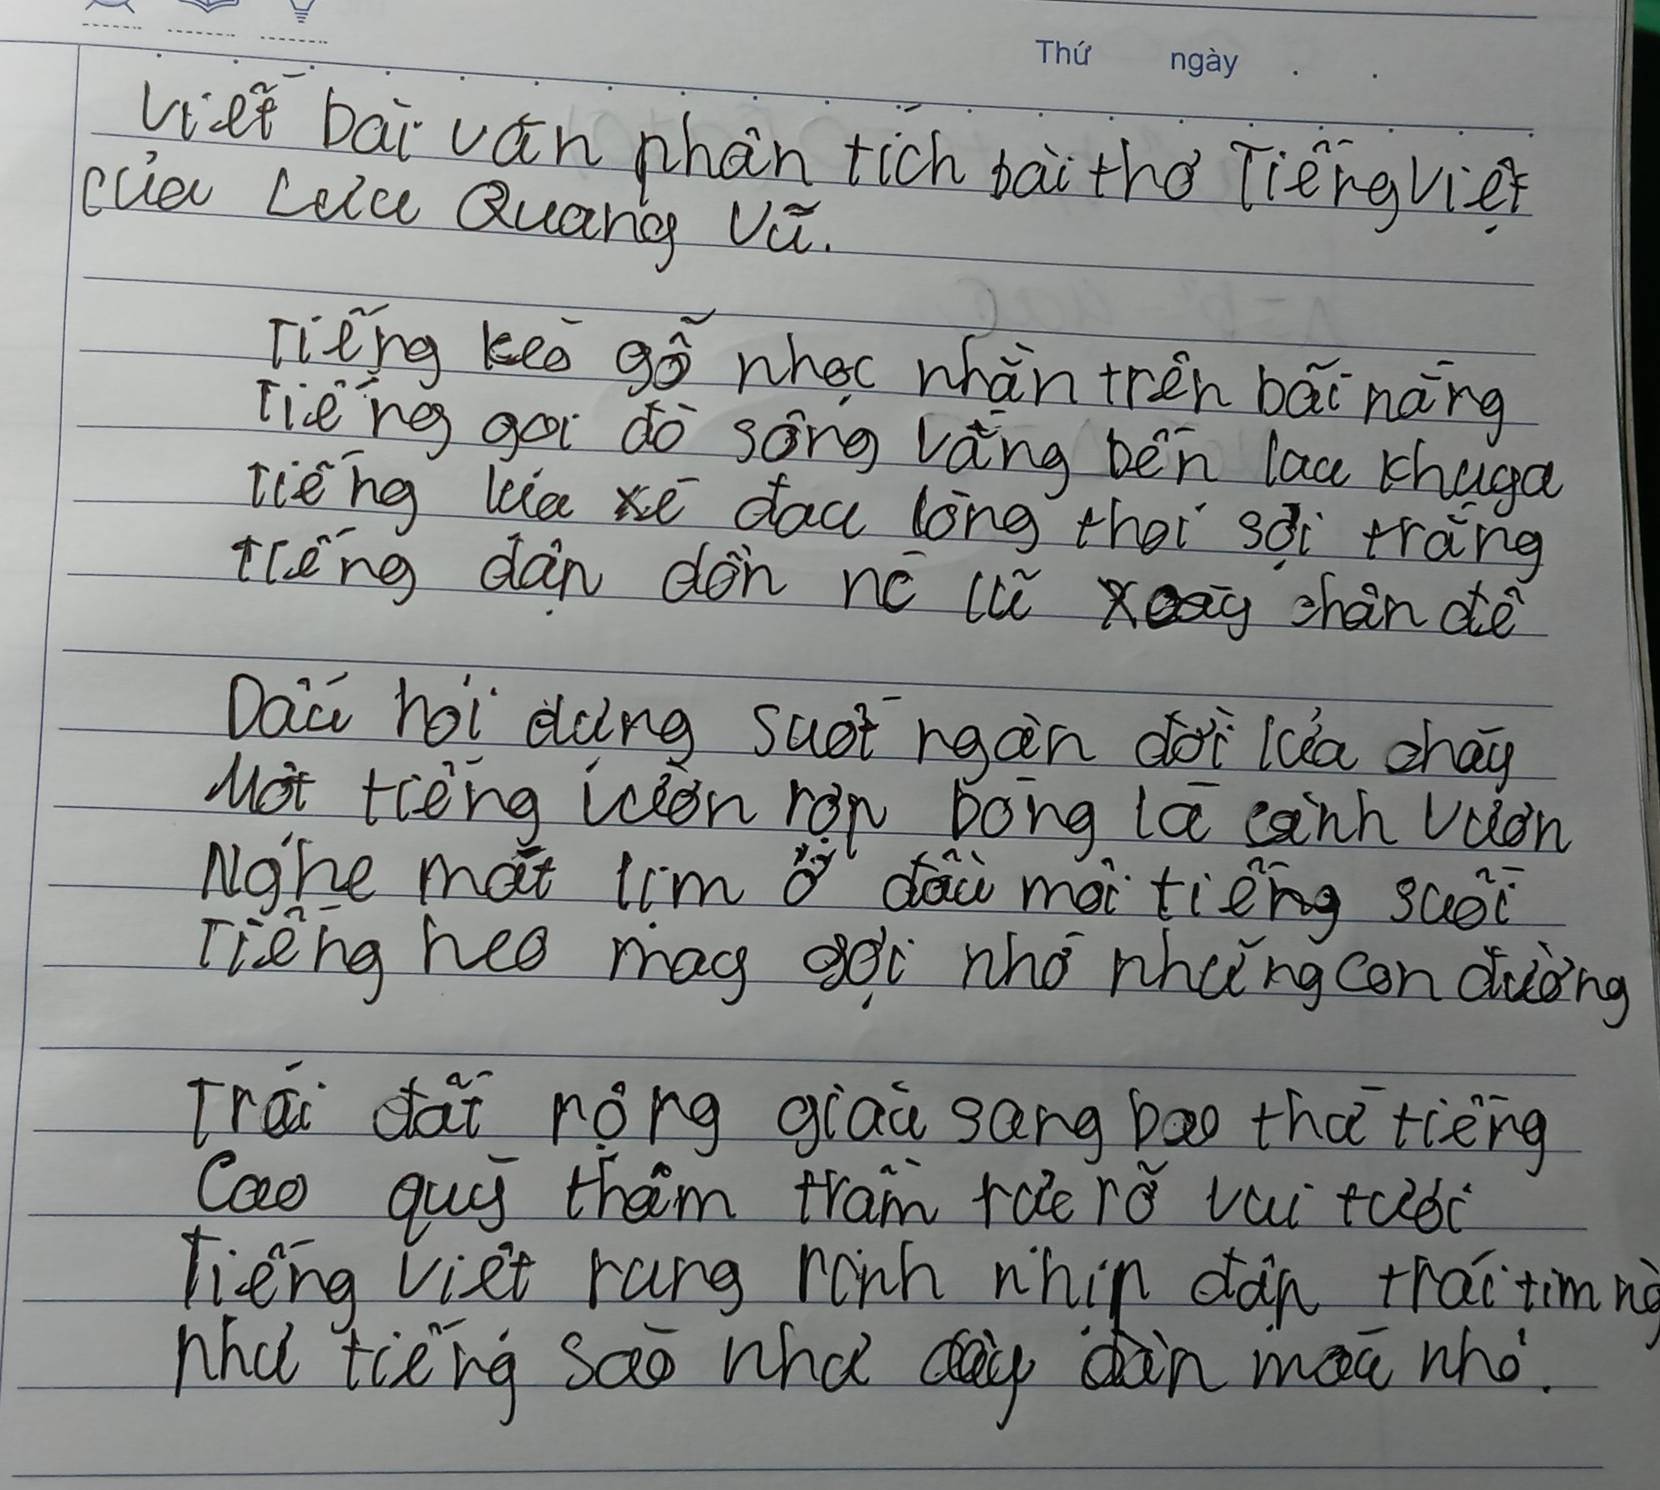 Thứ ngày
Viết bài văn phân tích bài thơ Tiếng Việt
của Lưu Quang Vũ.
Tiếng kéo gỗ nhọc nhằn trên bãi nắng
Tiếng gọi đò sông vắng bến lau khuya
tiếng lụa xé đau lòng thoi sợi trắng
tiếng dập dồn nước lũ xoáy chân đê
Dấu hỏi dựng suốt ngàn đời lửa cháy
Một tiếng vườn rợp bóng lá cành vươn
Nghe mát lịm ở đầu môi tiếng suối
Tiếng heo may gợi nhớ những con đường
Trái đất rộng giàu sang bao thứ tiếng
Cao quý thâm trầm rực rỡ vui tươi
Tiếng Việt rung rinh nhịp đập trái tim
như tiếng sáo như dây đàn máu nhỏ.